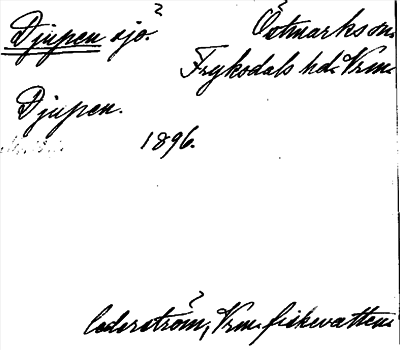 Djupen sjö.
Östmarks sn.
Fryksdals hd. Vrm.
Djupen.
1896.
Cederström, Vrm. fiskevatten